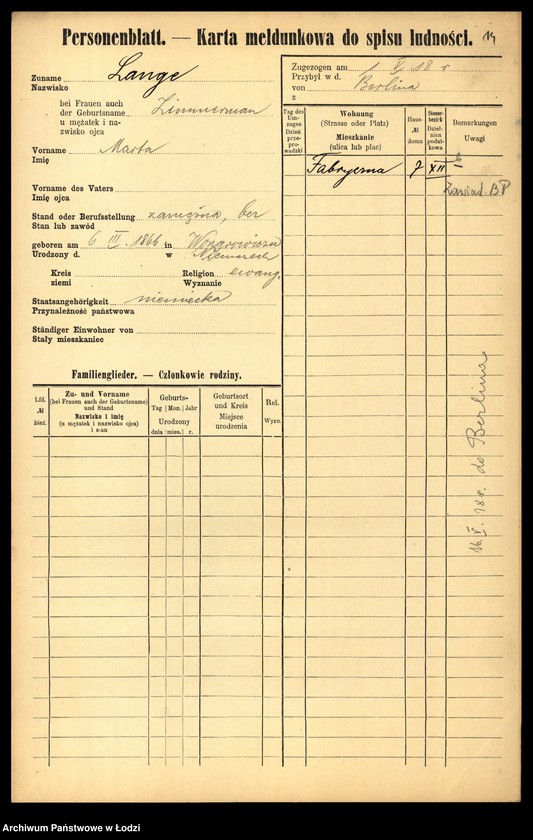 Personenblatt. — Karta meldunkowa do spisu ludności. 14
Zuname Lange
Nazwisko
bei Frauen auch
der Geburtsname Zimmerman
u mężatek i na-
zwisko ojca
Vorname Marta
Imię
Vorname des Vaters
Imię ojca
Stand oder Berufsstellung zamężna, ber
Stan lub zawód
geboren am 6 III. 1866 in
Urodzony d. w Niemczech
Kreis Religion ewang.
ziemi Wyznanie
Staatsangehörigkeit niemiecka
Przynależność państwowa
Ständiger Einwohner von
Stały mieszkaniec
Familienglieder. — Członkowie rodziny.
Lfd. № bież.
Zu- und Vorname
(bei Frauen auch der Geburtsname)
und Stand
Nazwisko i imię
(u mężatek i nazwisko ojca)
i stan
Geburts-
Tag Mon. Jahr
Urodzony
dnia mies. r.
Geburtsort
und Kreis
Miejsce
urodzenia
Rel.
Wyzn.
Zugezogen am 1 V. 18 r
Przybył w d.
von Berlina
z
Tag des
Um-
zuges
Dzień
prze-
prowa-
dzki
Wohnung
(Strasse oder Platz)
Mieszkanie
(ulica lub plac)
Haus-
№
domu
Steuer-
bezirk
Dziel-
nica
podat-
kowa
Bemerkungen
Uwagi
Fabryczna 7 XII
Zawiad. BP
16. V. 18 r. do Berlina
Archiwum Państwowe w Łodzi